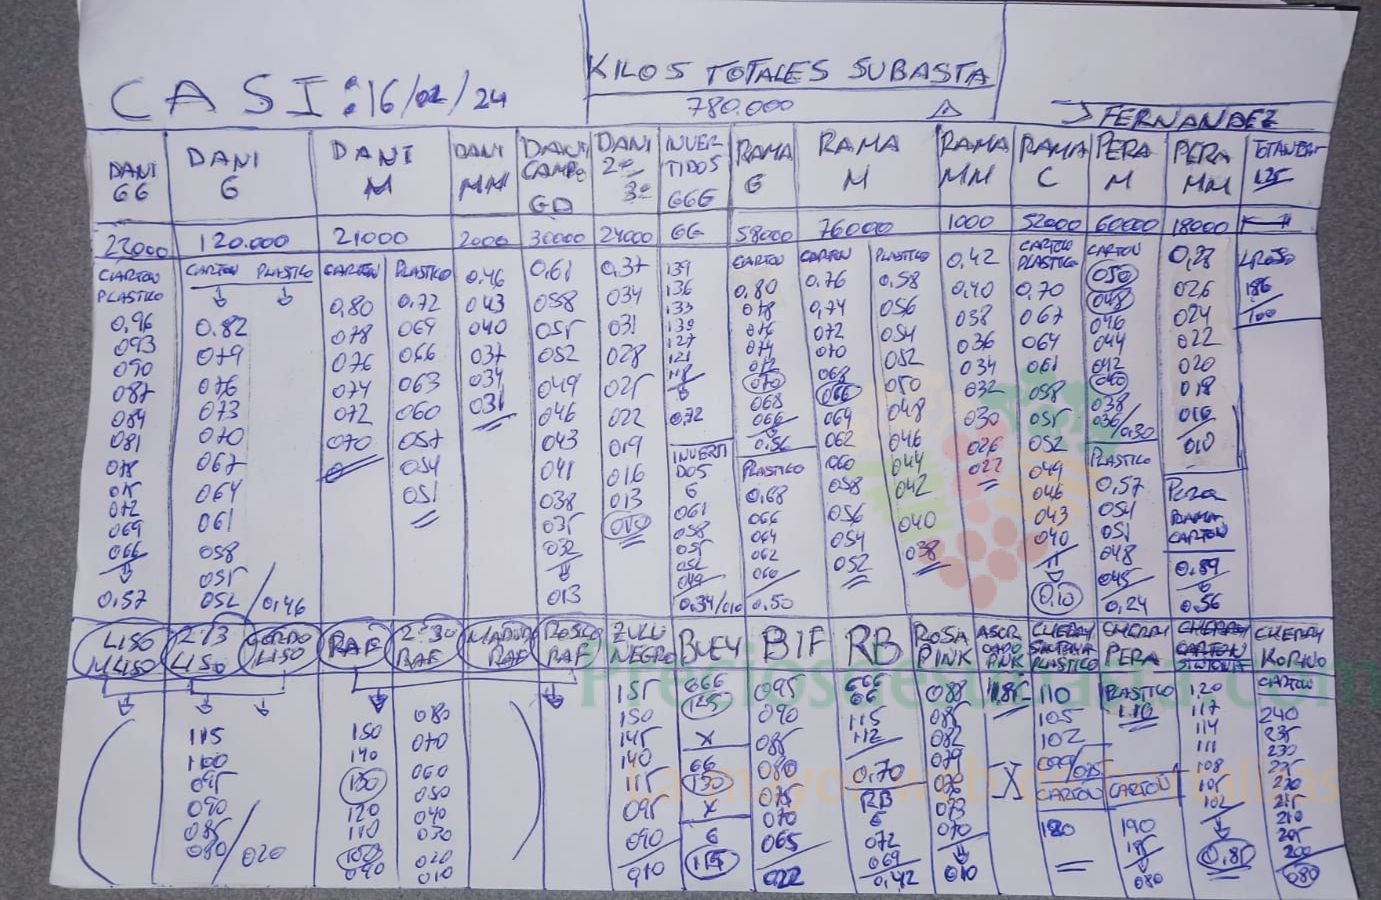 CASI: 16/02/24
KILOS TOTALES SUBASTA
780.000
FERNANDEZ
DANI GG
DANI G
DANI M
DANI MM
DANI CAMPO GD
DANI 2ª 3ª
INVERTIDOS GGG
RAMA G
RAMA M
RAMA MM
RAMA C
PERA M
PERA MM
120.000
21000
2000
30000
24000
GG
58000
76000
1000
52000
60000
18000
CARTON PLASTICO
0,96
093
090
087
084
081
078
075
072
069
066
0,57
CARTON PLASTICO
0.82
079
076
073
070
067
064
061
058
055
052/0,46
CARTON
0,80
078
076
074
072
070
PLASTICO
0,72
069
066
063
060
057
054
051
0,46
043
040
037
034
031
0,61
058
055
052
049
046
043
041
038
035
032
013
0,37
034
031
028
025
022
019
016
013
010
139
136
133
130
127
121
118
0,72
INVERTIDOS
G
061
058
055
052
049
0,34/010
CARTON
0,80
078
076
074
072
070
068
066
0,56
PLASTICO
0,68
066
064
062
060
0,50
CARTON
0.76
0,74
072
070
068
066
064
062
060
058
056
054
052
PLASTICO
0,58
056
054
052
050
048
046
044
042
040
038
0,42
0,40
038
036
034
032
030
026
022
CARTON PLASTICO
0,70
067
064
061
058
055
052
049
046
043
040
0,10
CARTON
050
048
046
044
042
040
038
036/0,30
PLASTICO
0,57
054
051
048
045
0,24
026
024
022
020
018
016
010
PERA RAMA CARTON
0,89
0,56
LISO M LISO
2ª/3 LISO
GORDO LISO
RAF
2ª 3ª RAF
MADURO RAF
ROSCA RAF
ZULU NEGRO
BUEY
BIF
RB
ROSA PINK
PINK
CHERRY SINTONIA PLASTICO
CHERRY PERA
CHERRY CARTON SINTONIA
CHERRY KORNO
115
100
095
090
085
080/020
150
140
130
120
110
100
090
080
070
060
050
040
030
020
010
155
150
145
140
115
095
090
010
GGG
125
X
GG
130
X
G
115
095
090
085
080
075
070
065
022
GGG
GG
115
112
0,70
RB
G
072
069
0,42
088
085
082
079
076
073
070
010
185
X
110
105
102
099/085
CARTON
180
PLASTICO
110
CARTON
190
185
080
120
117
114
111
108
105
102
0,85
CARTON
240
235
230
225
220
215
210
205
200
080
Preciosdesubasta.com